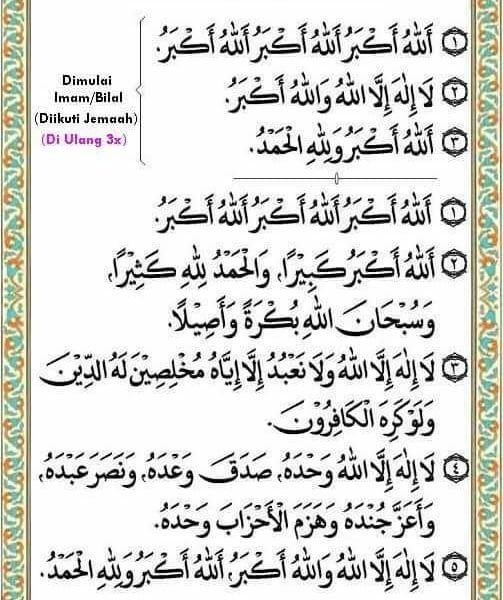 Dimulai
Imam/Bilal
(Diikuti Jemaah)
(Di Ulang 3x)
١ اَللهُ أَكْبَرُ اَللهُ أَكْبَرُ اَللهُ أَكْبَرُ.
٢ لَا إِلٰهَ إِلَّا اللهُ وَاللهُ أَكْبَرُ.
٣ اَللهُ أَكْبَرُ وَلِلّٰهِ الْحَمْدُ.
١ اَللهُ أَكْبَرُ اَللهُ أَكْبَرُ اَللهُ أَكْبَرُ.
٢ اَللهُ أَكْبَرُ كَبِيْرًا، وَالْحَمْدُ لِلّٰهِ كَثِيْرًا،
وَسُبْحَانَ اللهِ بُكْرَةً وَأَصِيْلًا.
٣ لَا إِلٰهَ إِلَّا اللهُ وَلَا نَعْبُدُ إِلَّا إِيَّاهُ مُخْلِصِيْنَ لَهُ الدِّيْنَ
وَلَوْ كَرِهَ الْكَافِرُوْنَ.
٤ لَا إِلٰهَ إِلَّا اللهُ وَحْدَهُ، صَدَقَ وَعْدَهُ، وَنَصَرَ عَبْدَهُ،
وَأَعَزَّ جُنْدَهُ وَهَزَمَ الْأَحْزَابَ وَحْدَهُ.
٥ لَا إِلٰهَ إِلَّا اللهُ وَاللهُ أَكْبَرُ، اَللهُ أَكْبَرُ وَلِلّٰهِ الْحَمْدُ.